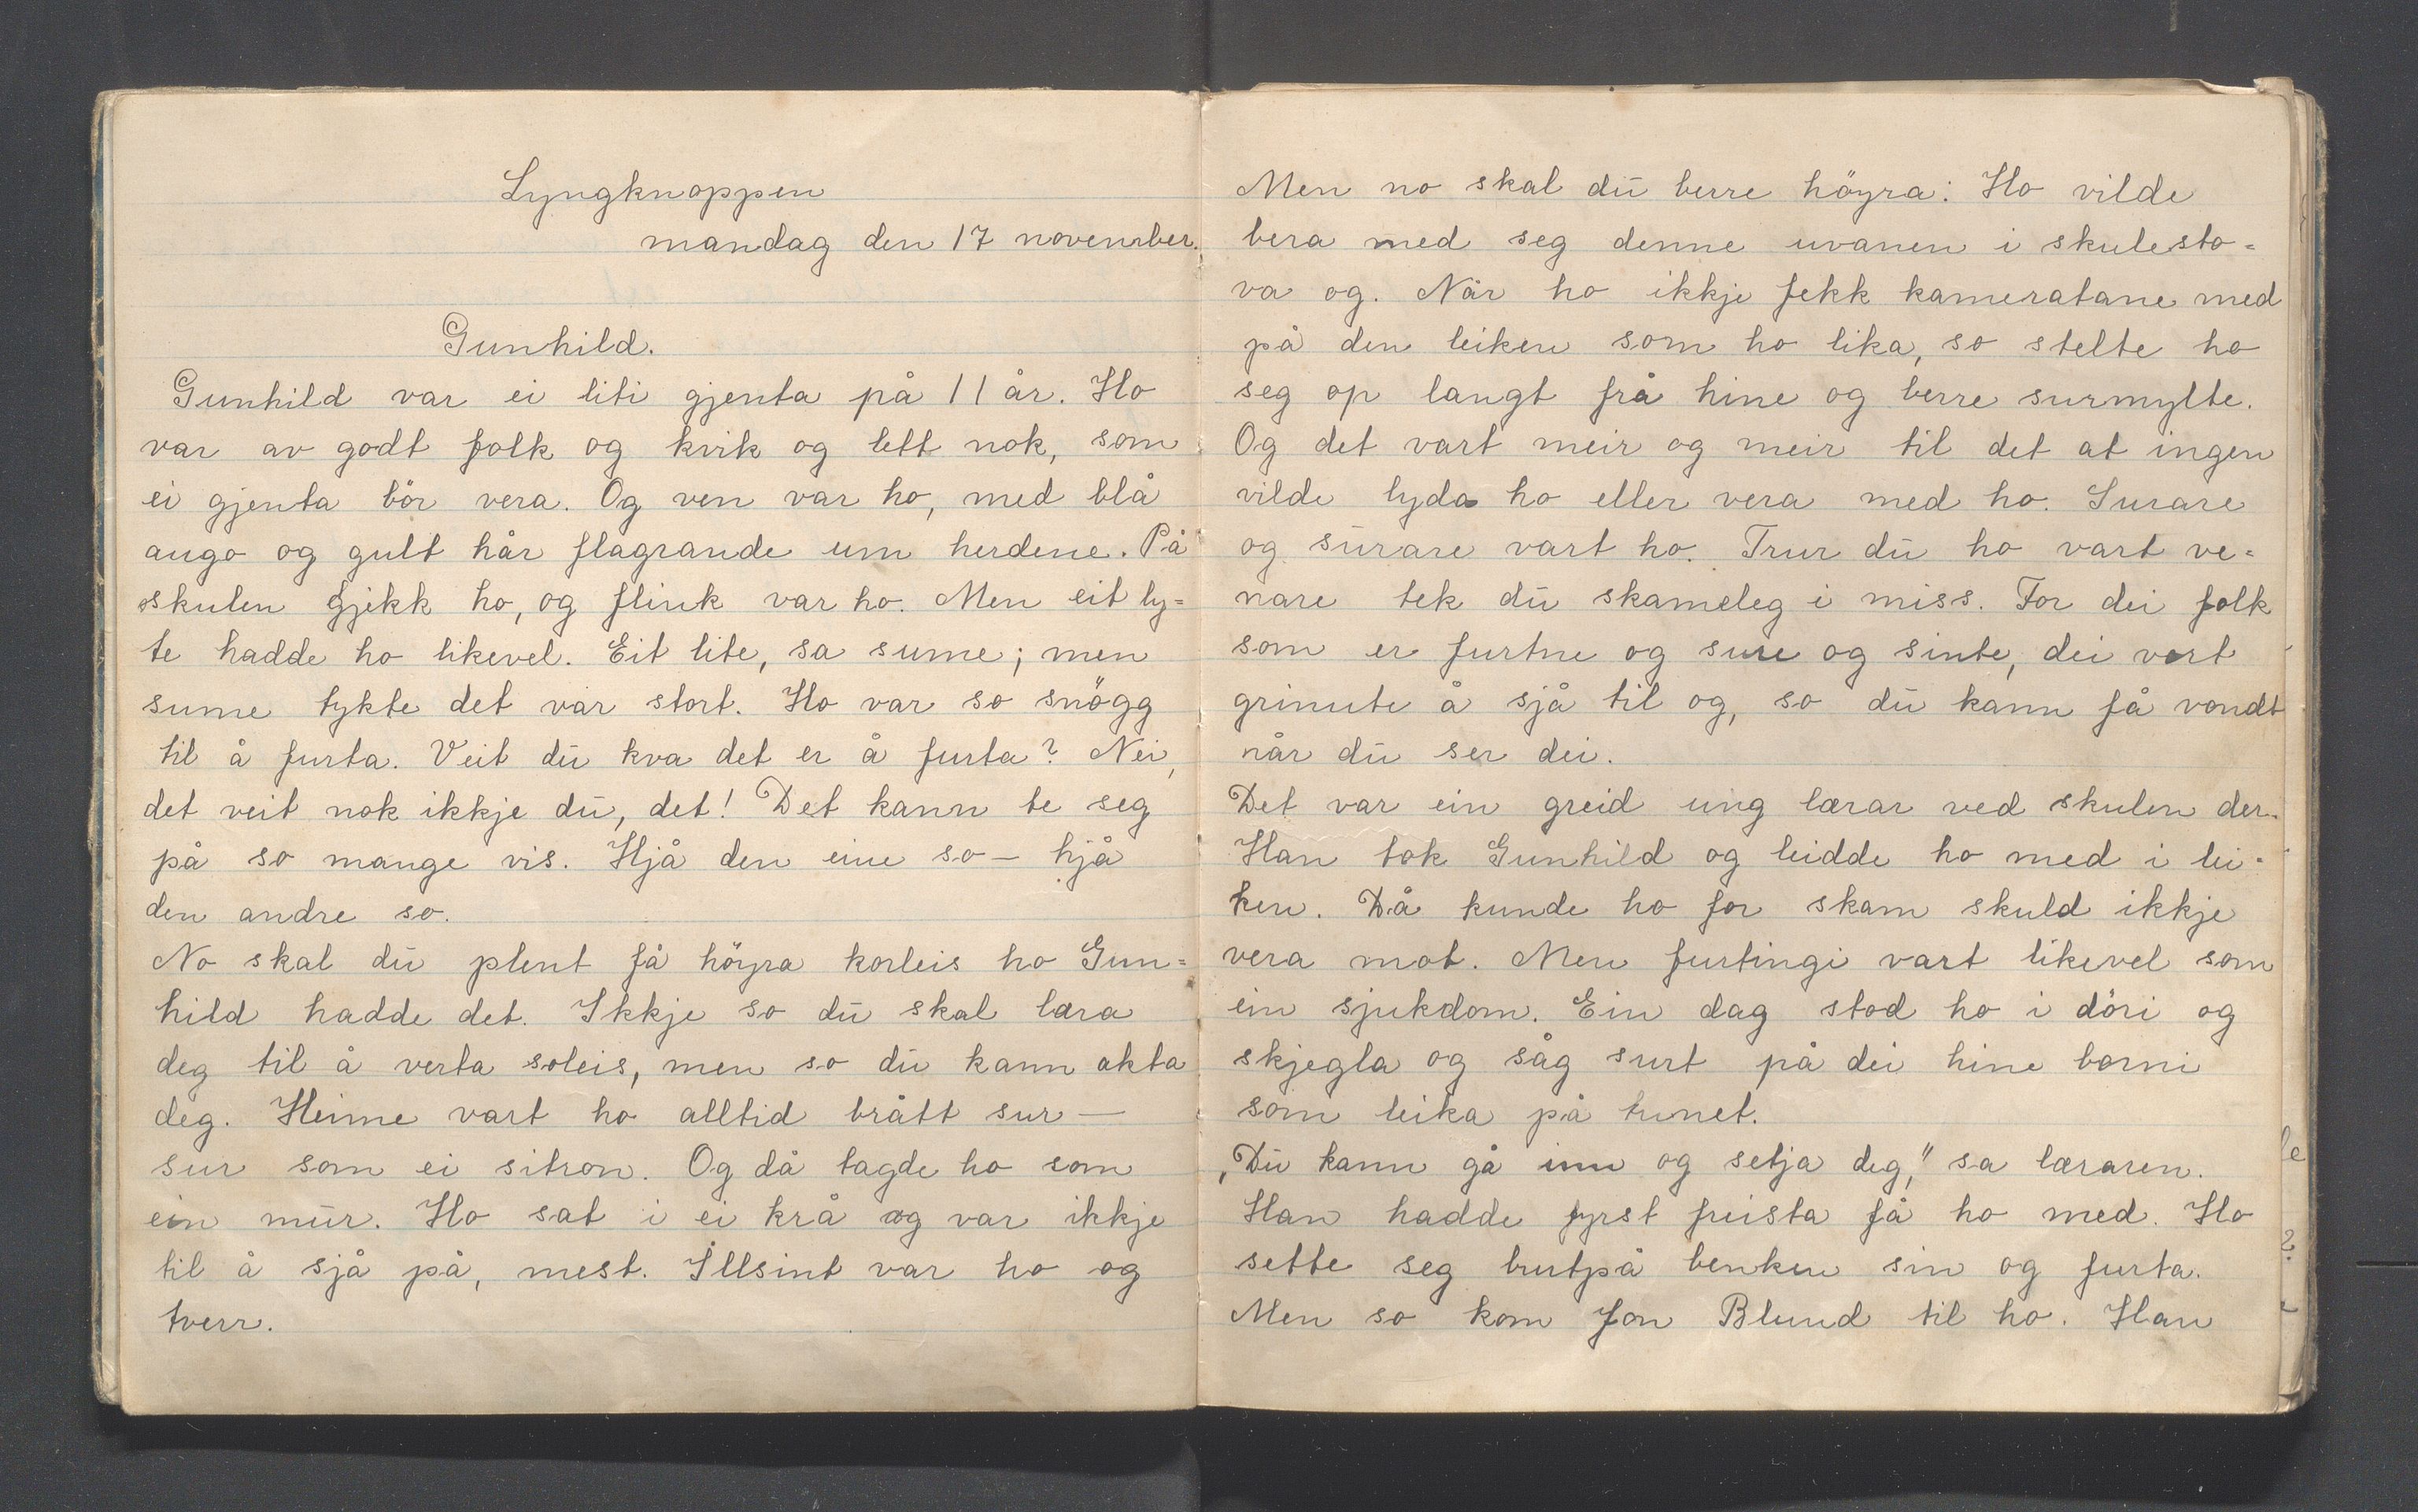 Lyngknoppen
mandag den 17 november.
Gunhild.
Gunhild var ei liti gjenta på 11 år. Ho
var av godt folk og kvik og lett nok, som
ei gjenta bör vera. Og ven var ho, med blå
augo og gult hår flagrande um herdene. På
skulen gjekk ho, og flink var ho. Men eit ly=
te hadde ho likevel. Eit lite, sa sume; men
sume tykte det var stort. Ho var so snögg
til å furta. Veit dū kva det er å furta? Nei,
det veit nok ikkje dū, det! Det kann te seg
på so mange vis. Hjå den eine so — hjå
den andre so.
No skal dū plent få höyra korleis ho Gun=
hild hadde det. Ikkje so dū skal læra
deg til å verta soleis, men so dū kann akta
deg. Heime vart ho alltid brått sur —
sur som ei sitron. Og då tagde ho som
ein mūr. Ho sat i ei krå og var ikkje
til å sjå på, mest. Illsint var ho og
tverr.
Men no skal dū berre höyra: Ho vilde
bera med seg denne uvanen i skulesto=
va og. Når ho ikkje fekk kameratane med
på den leiken som ho lika, so stelte ho
seg op langt frå hine og berre surmylte.
Og det vart meir og meir til det at ingen
vilde lyda ho eller vera med ho. Surare
og sūrare vart ho. Trur dū ho vart ve=
nare tek dū skameleg i miss. For dei folk
som er furtne og sure og sinte, dei vert
grinute å sjå til og, so dū kann få vondt
når dū ser dei.
Det var ein greid ung lærar ved skulen der.
Han tok Gunhild og leidde ho med i lei=
ken. Då kunde ho for skam skuld ikkje
vera mot. Men furtingi vart likevel som
ein sjukdom. Ein dag stod ho i döri og
skjegla og såg surt på dei hine borni
som leika på tunet.
„Dū kann gå inn og setja deg," sa læraren.
Han hadde fyrst freista få ho med. Ho
sette seg burtpå benken sin og furta.
Men so kom Jon Blund til ho. Han